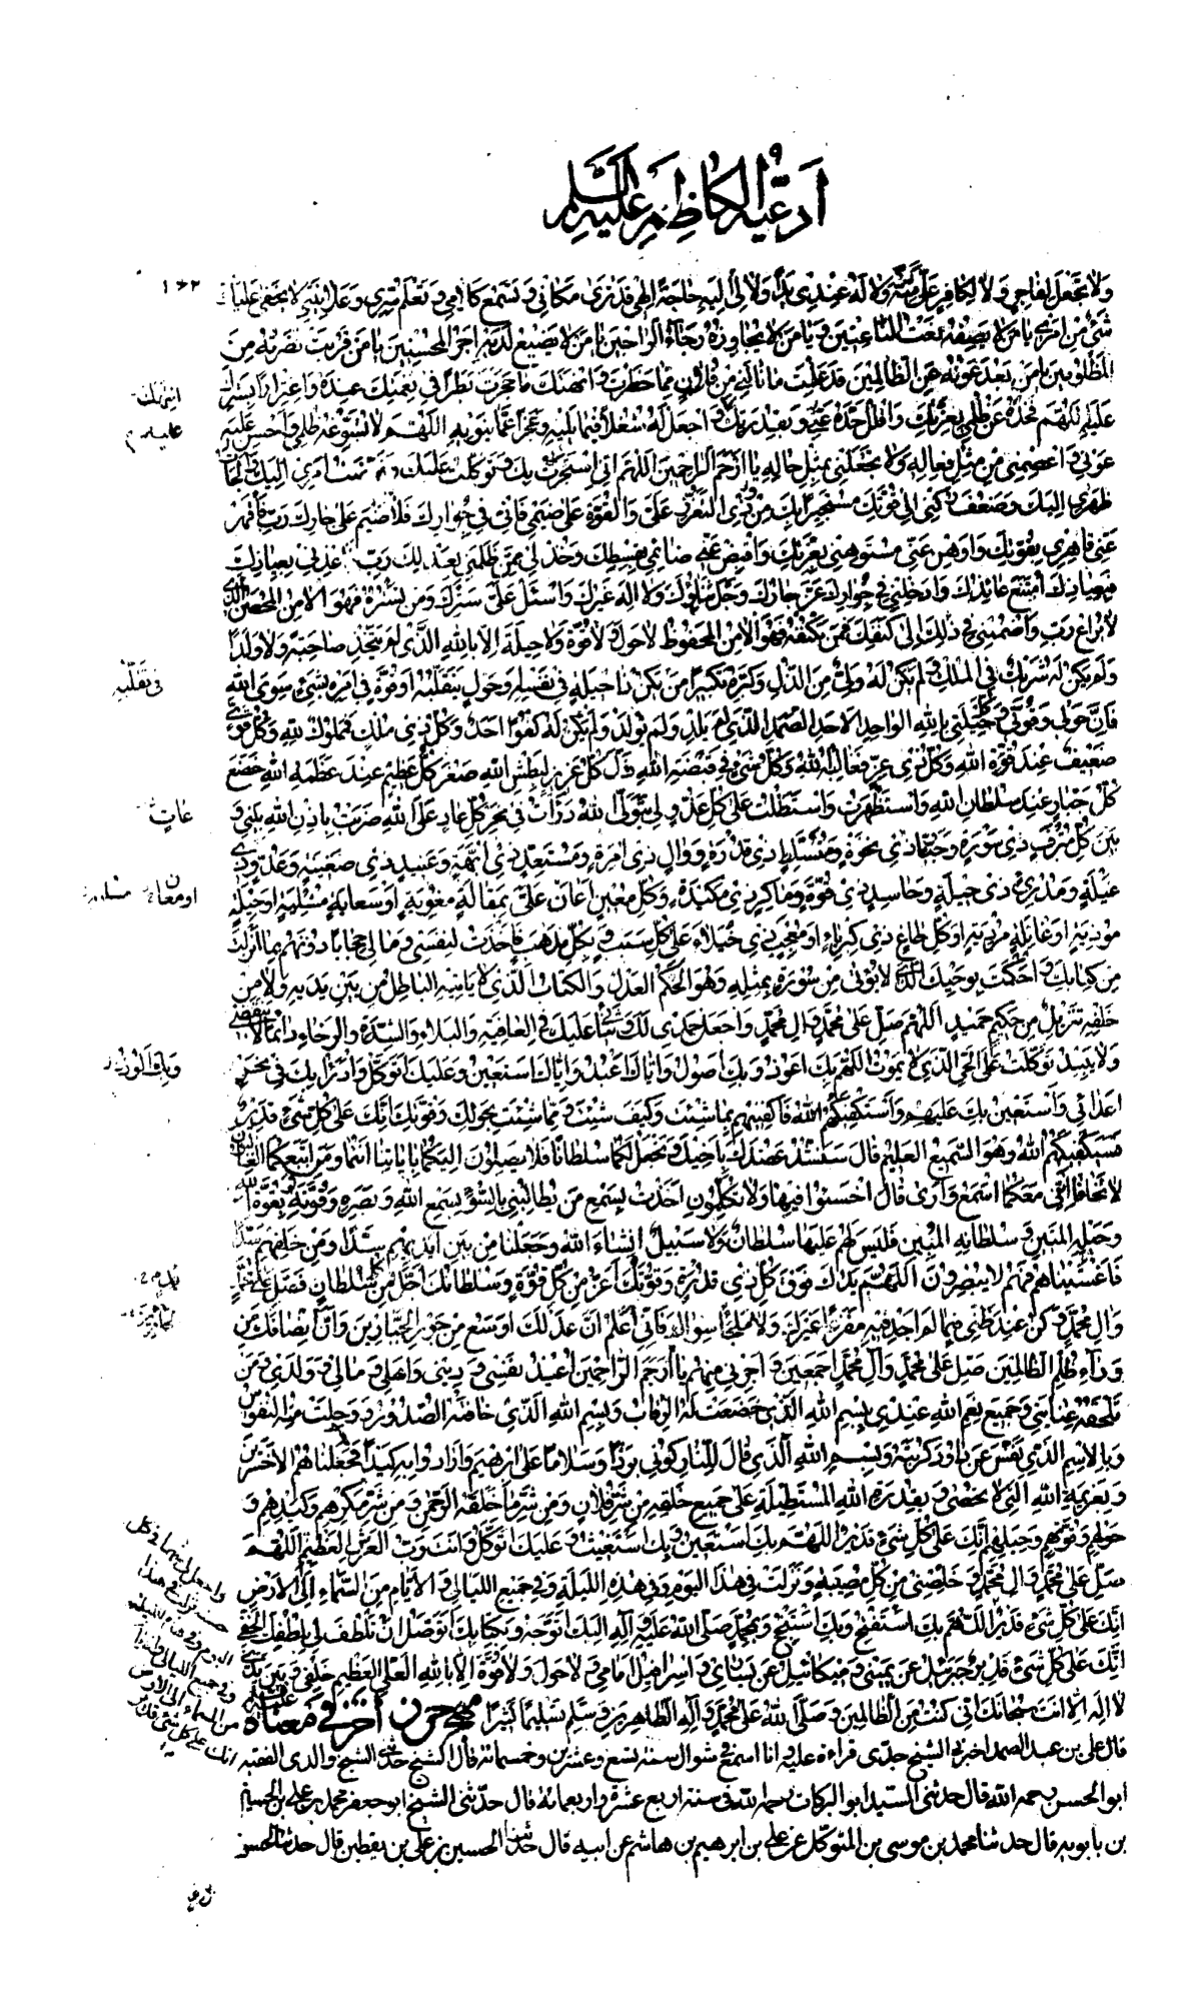 أدعية الكاظم عليه السلم
ولا تجعل لفاجر ولا لكافر علي منة ولا له عندي يدا ولا لي اليه حاجة الهي قد ترى مكاني وتسمع كلامي وتعلم سري وعلانيتي لا يخفى عليك
شئ من امري يا من لا يصفه نعت الناعتين ويا من لا يجاوزه رجاء الراجين يا من لا يضيع لديه اجر المحسنين يا من قربت نصرته من
المظلومين يا من بعد عونه عن الظالمين قد علمت ما نالني من فلان مما حظرت وانتهك مما حجرت بطرا في نعمتك عنده واغترارا بسترك
عليه اللهم فخذه عن ظلمي بعزتك وافلل حده عني بقدرتك واجعل له شغلا فيما يليه وعجزا عما ينويه اللهم لا تسوغه ظلمي واحسن عليه
عوني واعصمني من مثل فعاله ولا تجعلني بمثل حاله يا ارحم الراحمين اللهم اني استجرت بك وتوكلت عليك وفوضت امري اليك والجأت
ظهري اليك وضعف ركني الى قوتك مستجيرا بك من ذي التعزز علي والقوة على ضيمي فاني في جوارك فلا ضيم على جارك رب فاقهر
عني قاهري بقوتك واوهن عني مستوهني بعزتك واقبض عني ضائمي بقسطك وخذ لي ممن ظلمني بعدلك رب اعذني بعياذك
فبعياذك امتنع عائذك وادخلني في جوارك عز جارك وجل ثناؤك ولا اله غيرك واسبل علي سترك فمن تستره فهو الامن المحصن الذي
لا يراع رب واضممني في ذلك الى كنفك فمن تكنفه فهو الامن المحفوظ لا حول ولا قوة ولا حيلة الا بالله الذي لم يتخذ صاحبة ولا ولدا
ولم يكن له شريك في الملك ولم يكن له ولي من الذل وكبره تكبيرا من يكن ذا حيلة في نفسه او حول بتقلبه او قوة في امره بشئ سوى الله
فان حولي وقوتي وكل حيلتي بالله الواحد الاحد الصمد الذي لم يلد ولم يولد ولم يكن له كفوا احد وكل ذي ملك فمملوك لله وكل قوي
ضعيف عند قوة الله وكل ذي عز فغالبه الله وكل شئ في قبضة الله ذل كل عزيز لبطش الله صغر كل عظيم عند عظمة الله خضع
كل جبار عند سلطان الله واستظهرت واستطلت على كل عدو لي بتولي الله درأت في نحر كل عاد علي بالله ضربت باذن الله بيني و
بين كل مترف ذي سورة وجبار ذي نخوة ومتسلط ذي قدرة ووال ذي امرة ومستعد ذي ابهة وعنيد ذي ضغينة وعدو ذي
غيلة ومدرئ ذي حيلة وحاسد ذي قوة وماكر ذي مكيدة وكل معين اعان علي بمقالة مغوية او سعاية مشلية او حيلة
موذية او غائلة مردية او كل طاغ ذي كبرياء او معجب ذي خيلاء على كل سبب وبكل مذهب فاخذت لنفسي ومالي حجابا دونهم بما انزلت
من كتابك واحكمت من وحيك الذي لا يؤتى من سورة بمثله وهو الحكم العدل والكتاب الذي لا ياتيه الباطل من بين يديه ولا من
خلفه تنزيل من حكيم حميد اللهم صل على محمد وال محمد واجعل حمدي لك وثنائي عليك في العافية والبلاء والشدة والرخاء دائما لا ينقضي
ولا يبيد توكلت على الحي الذي لا يموت اللهم بك اعوذ وبك اصول واياك اعبد واياك استعين وعليك اتوكل وادرأ بك في نحر
اعدائي واستعين بك عليهم واستكفيكهم الله فاكفنيهم بما شئت وكيف شئت ومما شئت بحولك وقوتك انك على كل شئ قدير
فسيكفيكهم الله وهو السميع العليم قال سنشد عضدك باخيك ونجعل لكما سلطانا فلا يصلون اليكما باياتنا انتما ومن اتبعكما الغالبون
لا تخافا انني معكما اسمع وارى قال اخسئوا فيها ولا تكلمون اخذت بسمع من يطالبني بالسوء بسمع الله وبصره وقوته بقوة الله
وحبله المتين وسلطانه المبين فليس لهم علينا سلطان ولا سبيل انشاء الله وجعلنا من بين ايديهم سدا ومن خلفهم سدا
فاغشيناهم فهم لا يبصرون اللهم يدك فوق كل ذي قدرة وقوتك اعز من كل قوة وسلطانك اجل من كل سلطان فصل على محمد
وال محمد وكن عند ظني فيما لم اجد فيه مفزعا غيرك ولا ملجأ سواك فاني اعلم ان عدلك اوسع من جور الجبارين وان انصافك من
وراء ظلم الظالمين صل على محمد وال محمد اجمعين واجرني منهم يا ارحم الراحمين اعيذ نفسي وديني واهلي ومالي وولدي ومن
تلحقه عنايتي وجميع نعم الله عندي ببسم الله الذي خضعت له الرقاب وبسم الله الذي خافته الصدور ووجلت منه النفوس
وبالاسم الذي نفس عن داود كربته وبسم الله الذي قال للنار كوني بردا وسلاما على ابرهيم وارادوا به كيدا فجعلناهم الاخسرين
وبعزيمة الله التي لا تحصى وبقدرة الله المستطيلة على جميع خلقه من شر فلان ومن شر ما خلقه الرحمن ومن شر مكرهم وكيدهم و
حولهم وقوتهم وحيلهم انك على كل شئ قدير اللهم بك استعين وبك استغيث وعليك اتوكل وانت رب العرش العظيم اللهم
صل على محمد وال محمد وخلصني من كل مصيبة نزلت في هذا اليوم وفي هذه الليلة وفي جميع الليالي والايام من السماء الى الارض
انك على كل شئ قدير اللهم بك استفتح وبك استنجح وبمحمد صلى الله عليه وآله اليك اتوجه وبكتابك اتوسل ان تلطف لي بلطفك الخفي
انك على كل شئ قدير جبرئيل عن يميني وميكائيل عن يساري واسرافيل امامي ولا حول ولا قوة الا بالله العلي العظيم خلفي وبين يدي
لا اله الا انت سبحانك اني كنت من الظالمين وصلى الله على محمد وآله الطاهرين وسلم تسليما كثيرا حرز آخر في معناه عنه عليه السلم
قال علي بن عبد الصمد اخبرني الشيخ جدي قراءة عليه وانا اسمع في شوال سنة تسع وعشرين وخمسمائة قال الشيخ حدثني الشيخ والدي الفقيه
ابو الحسن رحمه الله قال حدثني السيد ابو البركات رحمه الله في سنة اربع عشرة واربعمائة قال حدثني الشيخ ابو جعفر محمد بن علي بن الحسين
بن بابويه قال حدثنا محمد بن موسى بن المتوكل عن علي بن ابرهيم بن هاشم عن ابيه قال حدثني الحسين بن علي بن يقطين قال حدثنا الحسن
في تقلبه
عات
واجعل لي سهما في كل
حسنة نزلت في هذا
اليوم وفي هذه الليلة
وفي جميع الليالي والايام
من السماء الى الارض
انك على كل شئ قدير